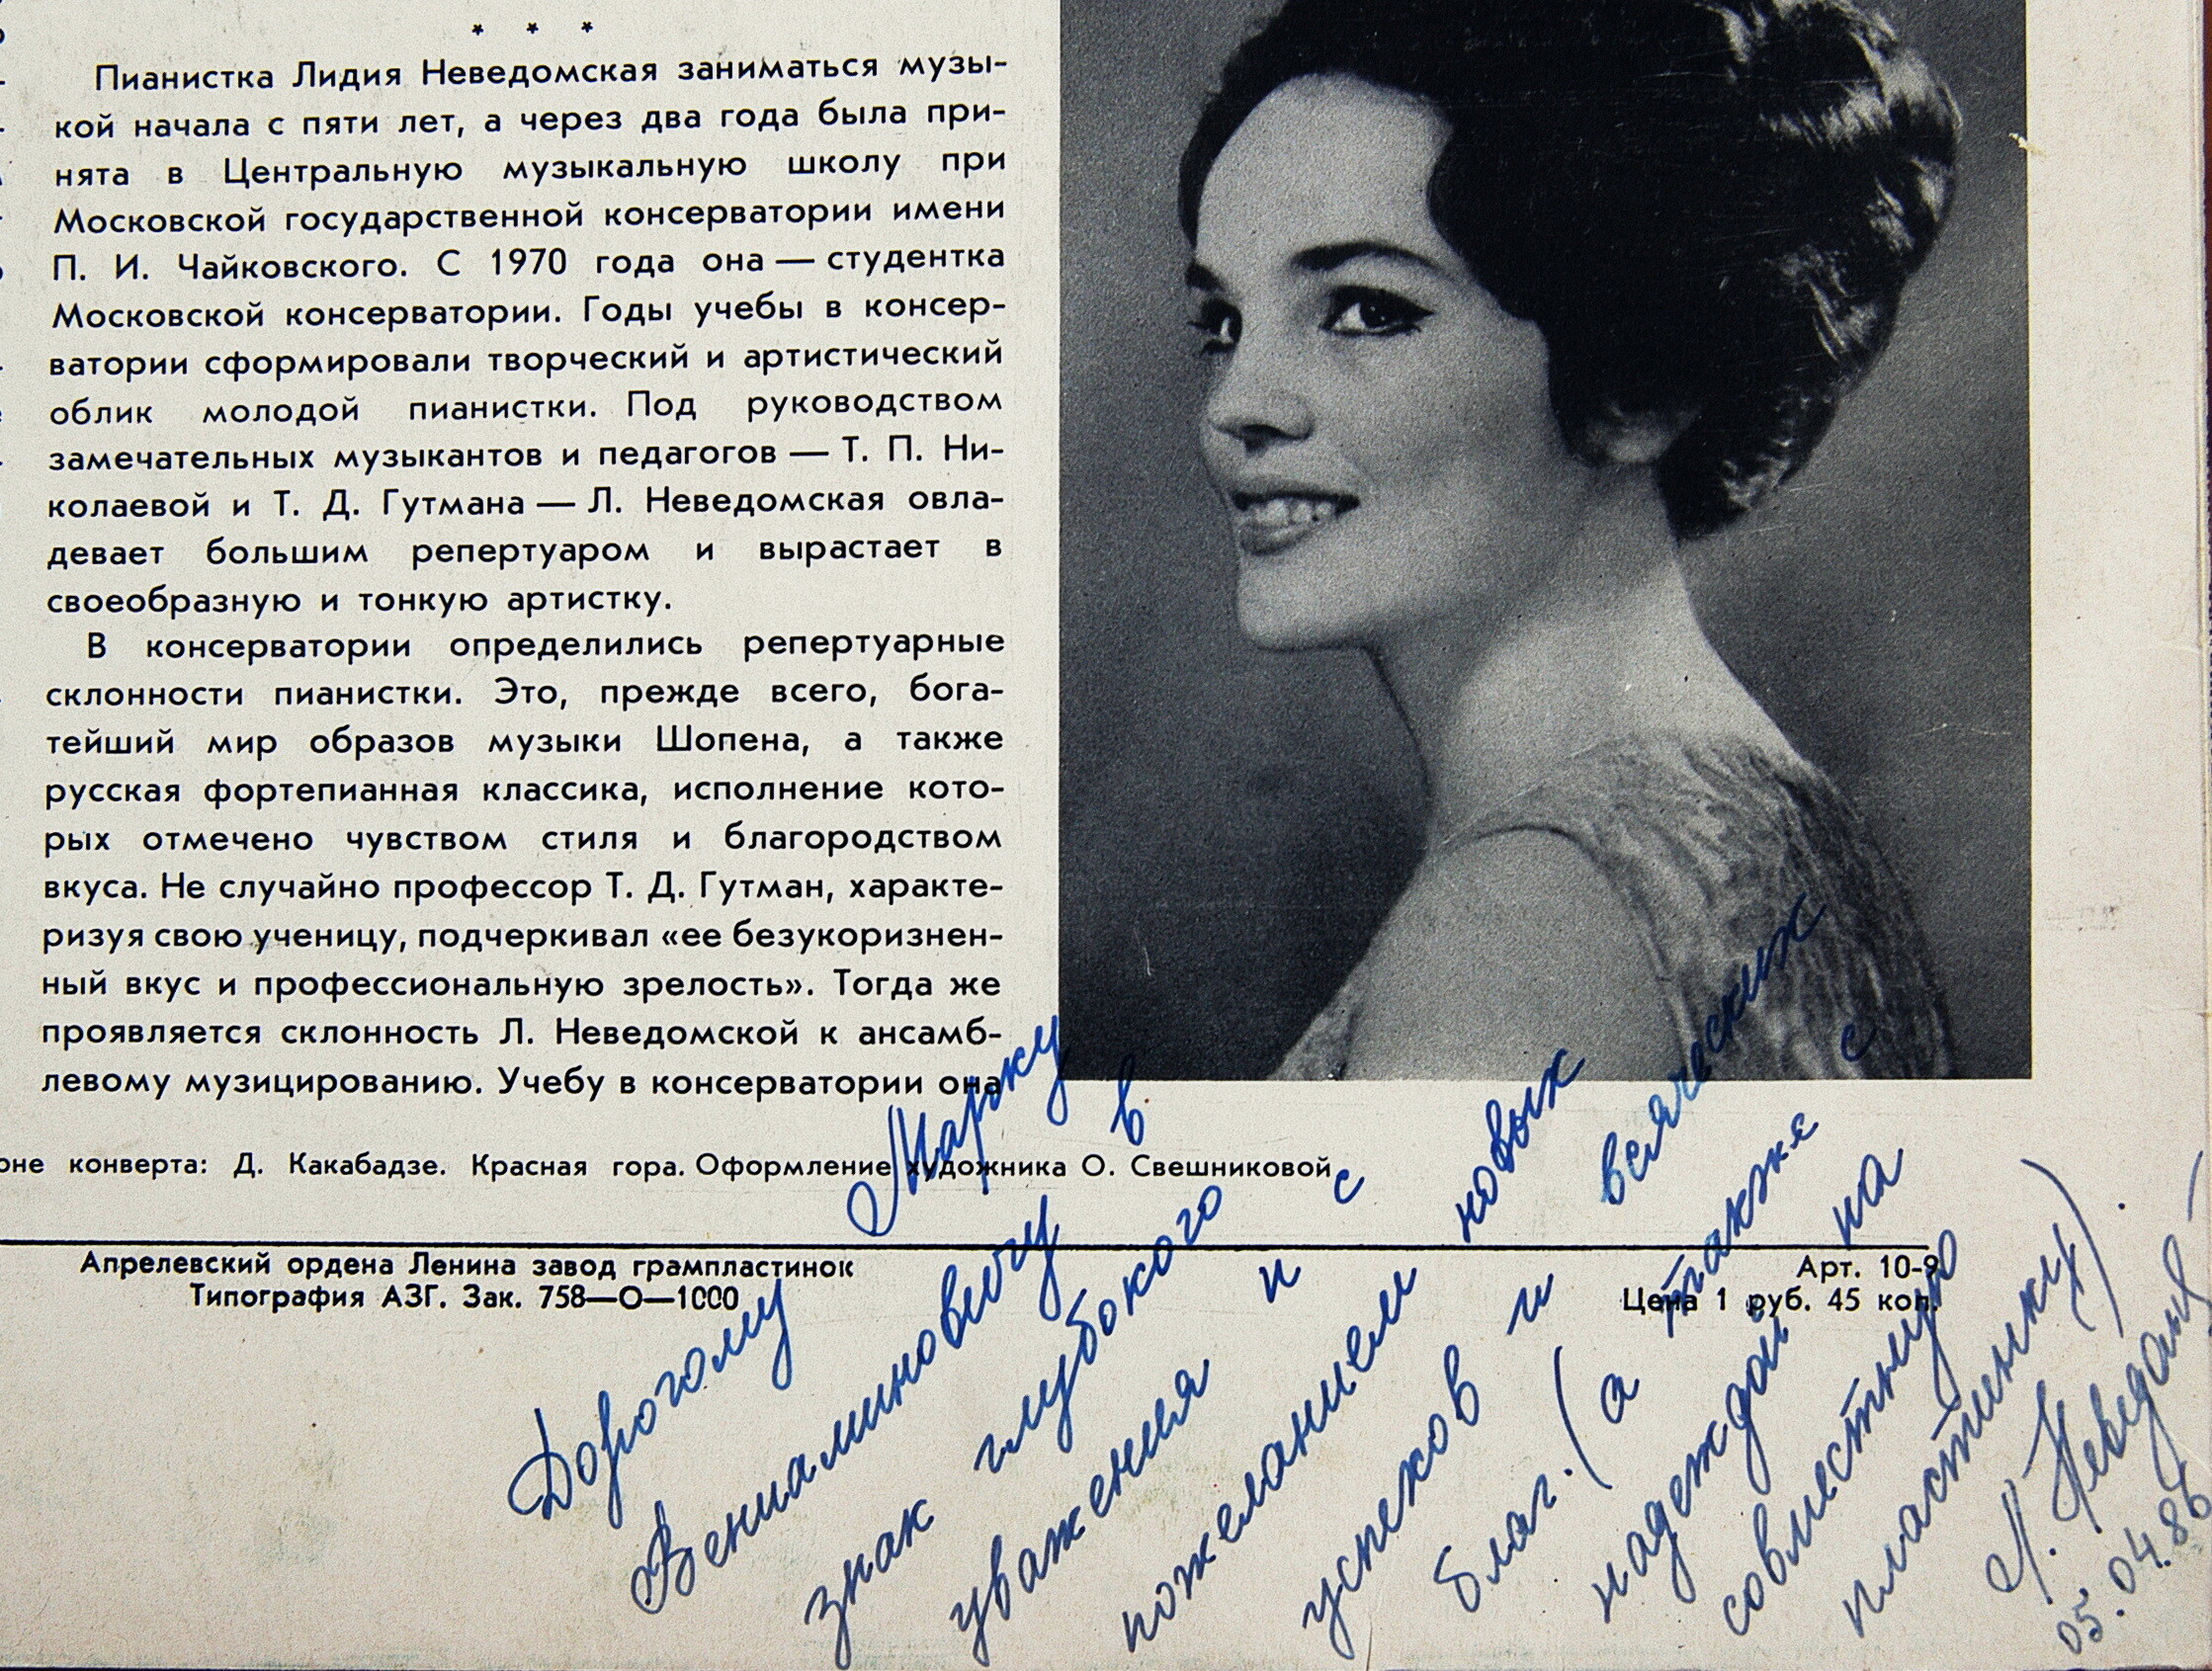 * * *
Пианистка Лидия Неведомская заниматься музы-
кой начала с пяти лет, а через два года была при-
нята в Центральную музыкальную школу при
Московской государственной консерватории имени
П. И. Чайковского. С 1970 года она — студентка
Московской консерватории. Годы учебы в консер-
ватории сформировали творческий и артистический
облик молодой пианистки. Под руководством
замечательных музыкантов и педагогов — Т. П. Ни-
колаевой и Т. Д. Гутмана — Л. Неведомская овла-
девает большим репертуаром и вырастает в
своеобразную и тонкую артистку.
В консерватории определились репертуарные
склонности пианистки. Это, прежде всего, бога-
тейший мир образов музыки Шопена, а также
русская фортепианная классика, исполнение кото-
рых отмечено чувством стиля и благородством
вкуса. Не случайно профессор Т. Д. Гутман, характе-
ризуя свою ученицу, подчеркивал «ее безукоризнен-
ный вкус и профессиональную зрелость». Тогда же
проявляется склонность Л. Неведомской к ансамб-
левому музицированию. Учебу в консерватории она
оне конверта: Д. Какабадзе. Красная гора. Оформление художника О. Свешниковой
Апрелевский ордена Ленина завод грампластинок
Типография АЗГ. Зак. 758—О—1000
Арт. 10-9
Цена 1 руб. 45 коп.
Дорогому Марку
Вениаминовичу в
знак глубокого
уважения и с
пожеланием новых
успехов и всяческих
благ. (а также с
надеждой на
совместную
пластинку).
Л. Неведомс
05.04.86